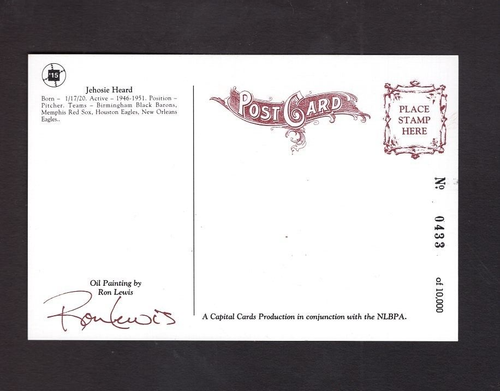 #15
Jehosie Heard
Born – 1/17/20. Active – 1946-1951. Position –
Pitcher. Teams – Birmingham Black Barons,
Memphis Red Sox, Houston Eagles, New Orleans
Eagles..
Oil Painting by
Ron Lewis
Ron Lewis
POST CARD
PLACE
STAMP
HERE
No 0433 of 10,000
A Capital Cards Production in conjunction with the NLBPA.